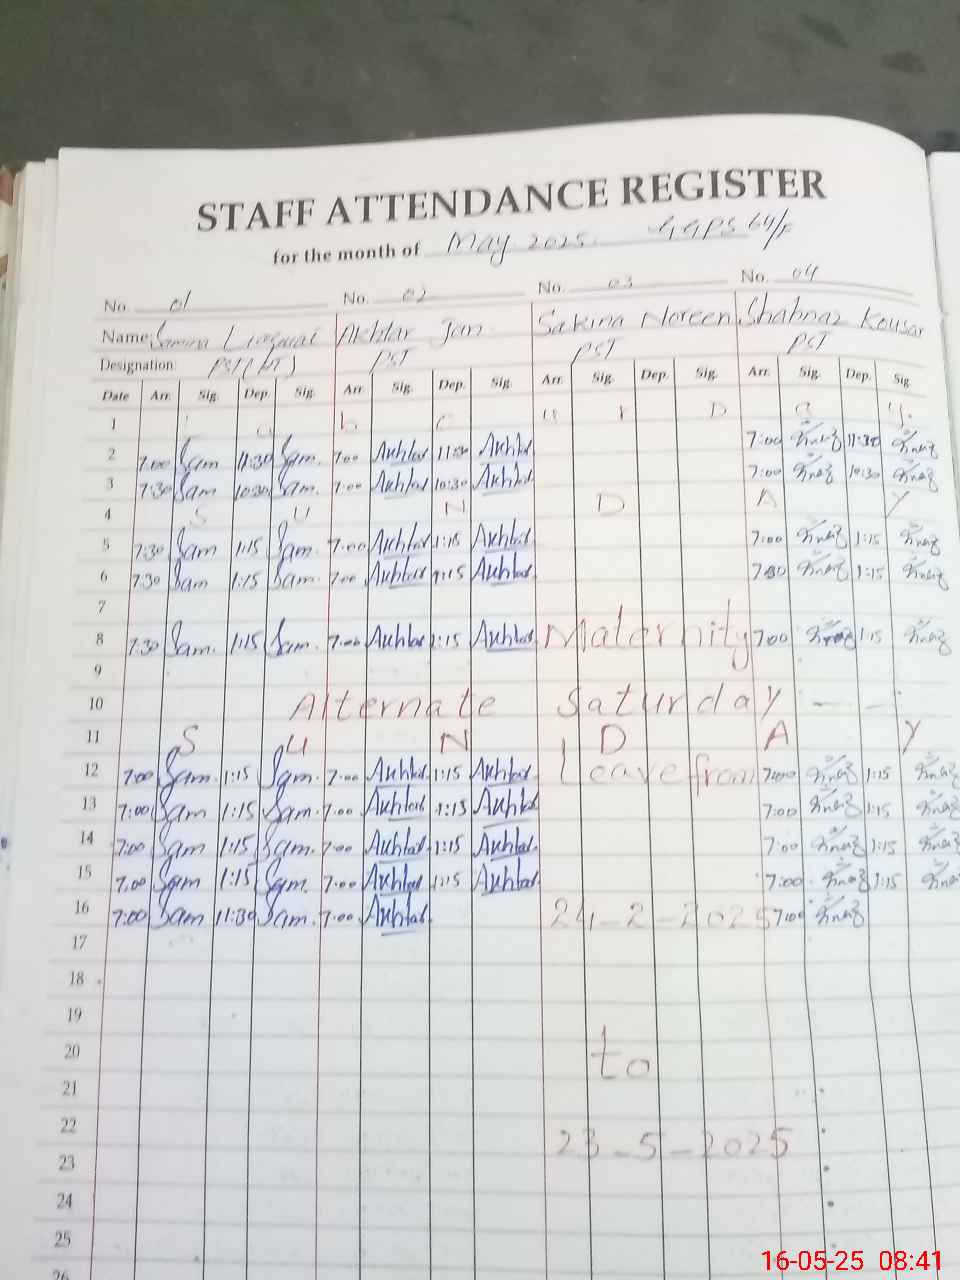 STAFF ATTENDANCE REGISTER
for the month of May 2025. GGPS 64/F
No. 01 No. 02 No. 03 No. 04
Name: Samina Akhtar Jan Sakina Noreen Shahnaz Kousar
Designation: PST PST PST PST
Date Arr. Sig. Dep. Sig. Arr. Sig. Dep. Sig. Arr. Sig. Dep. Sig. Arr. Sig. Dep. Sig.
1
2 7:00 Sam 11:30 Sam. 7:00 Akhtar 11:30 Akhtar 7:00 شہناز 11:30 شہناز
3 7:30 Sam 10:30 Sam. 7:00 Akhtar 10:30 Akhtar 7:00 شہناز 10:30 شہناز
4 S U N D A Y
5 7:30 Sam 1:15 Sam. 7:00 Akhtar 1:15 Akhtar 7:00 شہناز 1:15 شہناز
6 7:30 Sam 1:15 Sam. 7:00 Akhtar 1:15 Akhtar شہناز 1:15 شہناز
7
8 7:30 Sam. 1:15 Sam. 7:00 Akhtar 1:15 Akhtar Maternity 7:00 شہناز 1:15 شہناز
9
10 Alternate Saturday — —
11 S U N D A Y
12 7:00 Sam. 1:15 Sam. 7:00 Akhtar 1:15 Akhtar Leave from 7:00 شہناز 1:15 شہناز
13 7:00 Sam 1:15 Sam. 7:00 Akhtar 1:15 Akhtar 7:00 شہناز 1:15 شہناز
14 7:00 Sam 1:15 Sam. 7:00 Akhtar 1:15 Akhtar 7:00 شہناز 1:15 شہناز
15 7:00 Sam 1:15 Sam. 7:00 Akhtar 1:15 Akhtar 7:00 شہناز 1:15 شہناز
16 7:00 Sam 11:30 Sam. 7:00 Akhtar 24-2-2025 7:00 شہناز
17
18
19
20 to
21
22 23-5-2025
23
24
25
26
16-05-25 08:41